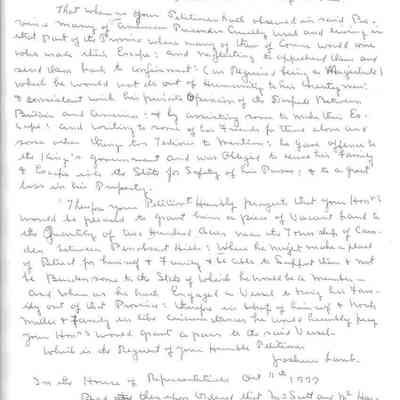 That when as your Petitioner hath observed in said Pro-
vince many of American Prisoners Cruelly used and being in
that part of the Province where many of them of Course would come
who made their Escape: and neglecting to apprehend them and
send them back to confinement: (as Required being a Magistrate)
which he would not do out of Humanity to his Countrymen:
& consistent with his private Opinion of the Dispute Between
Britain and America: & by assisting some to make their Es-
cape: and writing to some of his Friends for them above and
some other things too Tedious to Mention: he gave offence to
the King's government and was Obliged to leave his Family
& Escape into the States for Safety of his Person: & to a great
loss in his Property.
Therefore your Petitioner Humbly prayeth that your Honrs
would be pleased to grant him a piece of Vacant Land to
the Quantity of two Hundred Acres near the Township of Cam-
den between Penobscot Hills: Where he might make a place
of Retreat for himself & Family & be able to Support them & not
be Burdensome to the State of which he would be a Member -
and when as he hath Engaged a Vessel to bring his Fam-
ily out of that Province: therefore in behalf of himself & Noah
Miller & Family in like circumstances he would humbly pray
your Honrs would grant a pass to the said Vessel -
Which is the Request of your Humble Petitioner
Joshua Lamb.
In the House of Representatives Oct 11th 1777
Read thereupon Ordered that Mr Scott and Mr